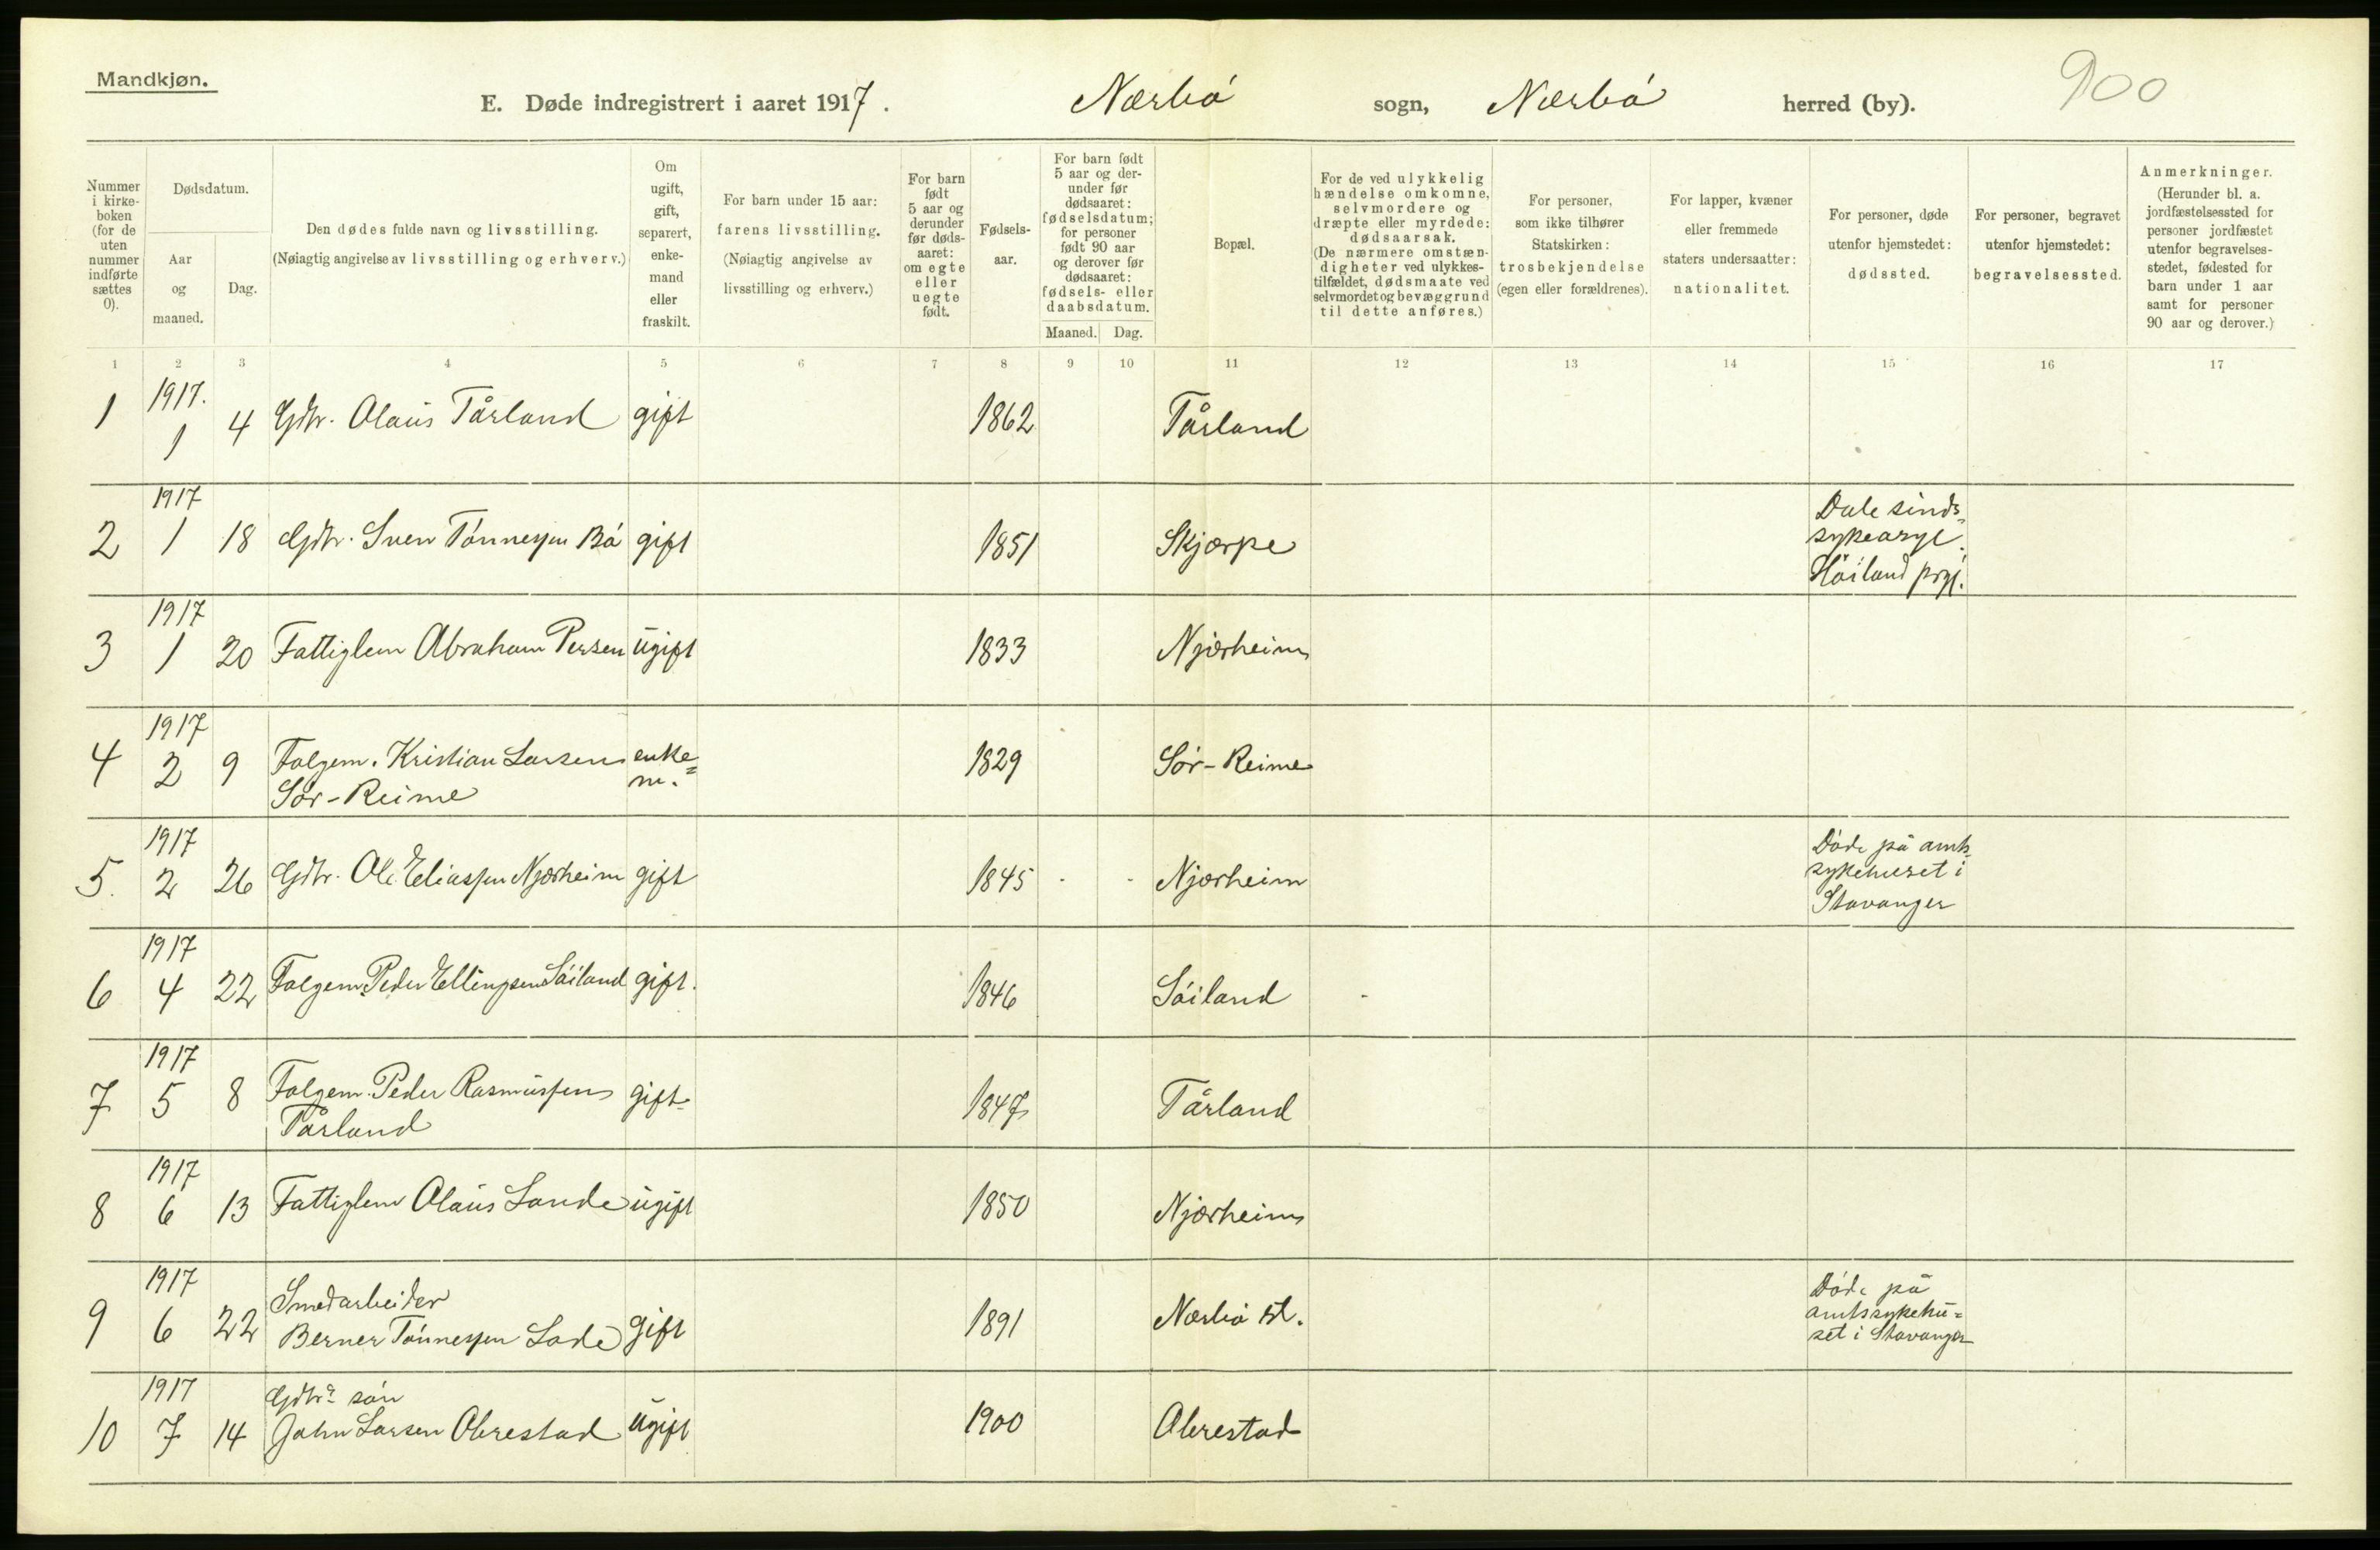 Mandkjøn.
E. Døde indregistrert i aaret 1917. Nærbø sogn, Nærbø herred (by). 900
Nummer i kirke-boken (for de uten nummer indførte sættes 0).
Dødsdatum.
Aar og maaned.
Dag.
Den dødes fulde navn og livsstilling.
(Nøiagtig angivelse av livsstilling og erhverv.)
Om ugift, gift, separert, enke-mand eller fraskilt.
For barn under 15 aar: farens livsstilling.
(Nøiagtig angivelse av livsstilling og erhverv.)
For barn født 5 aar og derunder før døds-aaret: om egte eller uegte født.
Fødsels-aar.
For barn født 5 aar og der-under før dødsaaret: fødselsdatum; for personer født 90 aar og derover før dødsaaret: fødsels- eller daabsdatum.
Maaned. Dag.
Bopæl.
For de ved ulykkelig hændelse omkomne, selvmordere og dræpte eller myrdede: dødsaarsak.
(De nærmere omstæn-digheter ved ulykkes-tilfældet, dødsmaate ved selvmordet og bevæggrund til dette anføres.)
For personer, som ikke tilhører Statskirken: trosbekjendelse (egen eller forældrenes).
For lapper, kvæner eller fremmede staters undersaatter: nationalitet.
For personer, døde utenfor hjemstedet: dødssted.
For personer, begravet utenfor hjemstedet: begravelsessted.
Anmerkninger.
(Herunder bl. a. jordfæstelsessted for personer jordfæstet utenfor begravelses-stedet, fødested for barn under 1 aar samt for personer 90 aar og derover.)
1 2 3 4 5 6 7 8 9 10 11 12 13 14 15 16 17
1 1917. 1 4 Gdbr. Olaus Tårland gift 1862 Tårland
2 1917 1 18 Gdbr. Sven Tønnessen Bø gift 1851 Skjærpe Dale sinds=
sykeasyl.
Høiland prgj.
3 1917 1 20 Fattiglem Abraham Persen ugift 1833 Njærheim
4 1917 2 9 Folgem. Kristian Larsen enke= 1829 Sør-Reime
Sør-Reime m.
5. 1917 2 26 Gdbr. Ole Eliassen Njærheim gift 1845 Njærheim Døde på amts
sykehuset i
Stavanger
6 1917 4 22 Folgem. Peder Ellingsen Søiland gift. 1846 Søiland
7 1917 5 8 Folgem. Peder Rasmussen gift 1847 Tårland
Tårland
8 1917 6 13 Fattiglem Olaus Lande ugift 1850 Njærheim
9 1917 6 22 Smedarbeider
Berner Tønnessen Lode gift 1891 Nærbø st. Døde på
amtssykehu=
set i Stavanger
10 1917 7 14 Gdbr. søn
John Larsen Obrestad ugift 1900 Obrestad